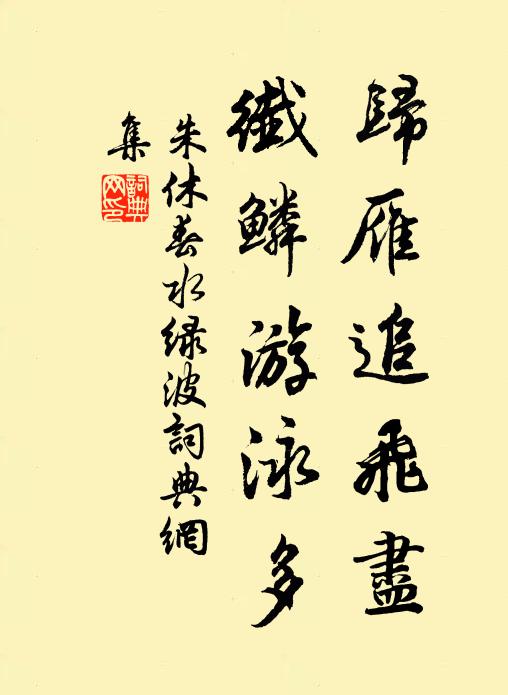 歸雁追飛盡
纖鱗游泳多
朱休春水绿波詞典網
集
詞典网印